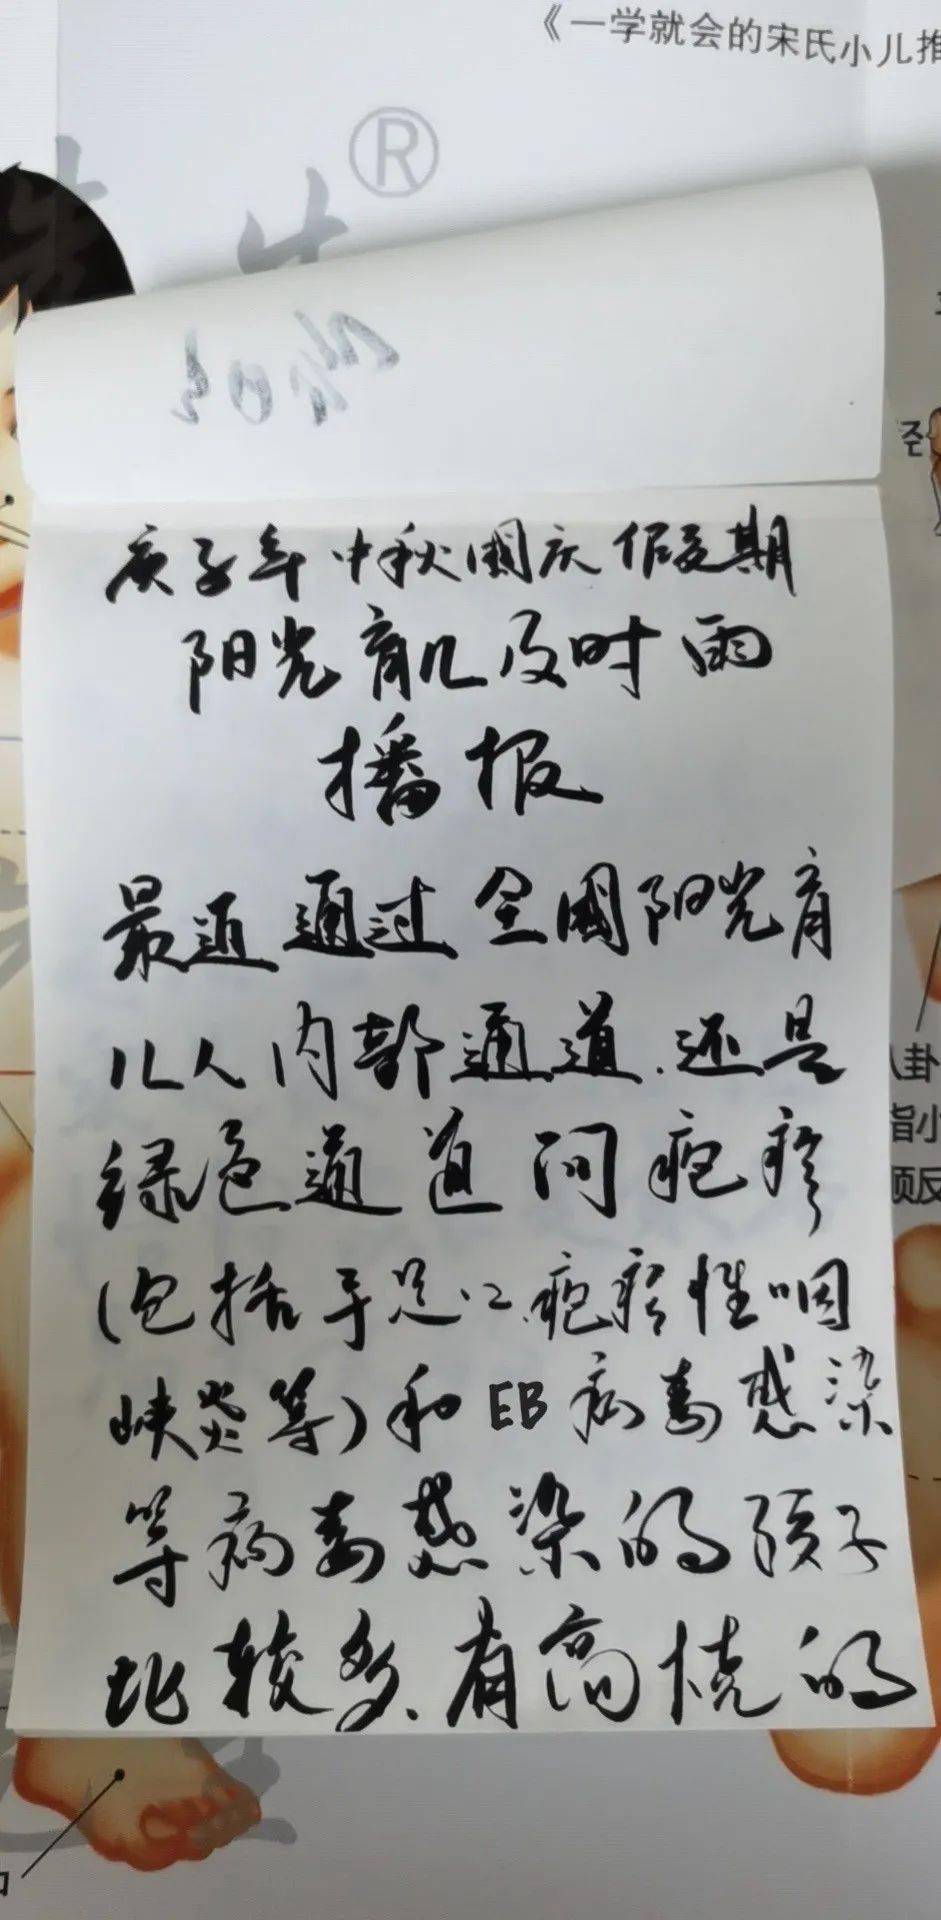 《一学就会的宋氏小儿推
®
庚子年中秋國庆假期
阳光育儿及时雨
播报
最近通过全國阳光育
儿人内部通道.还是
绿色通道问疱疹
(包括手足口.疱疹性咽
峡炎等)和EB病毒感染
等病毒感染的孩子
比较多.有高烧的
径
八卦
指小
顶反